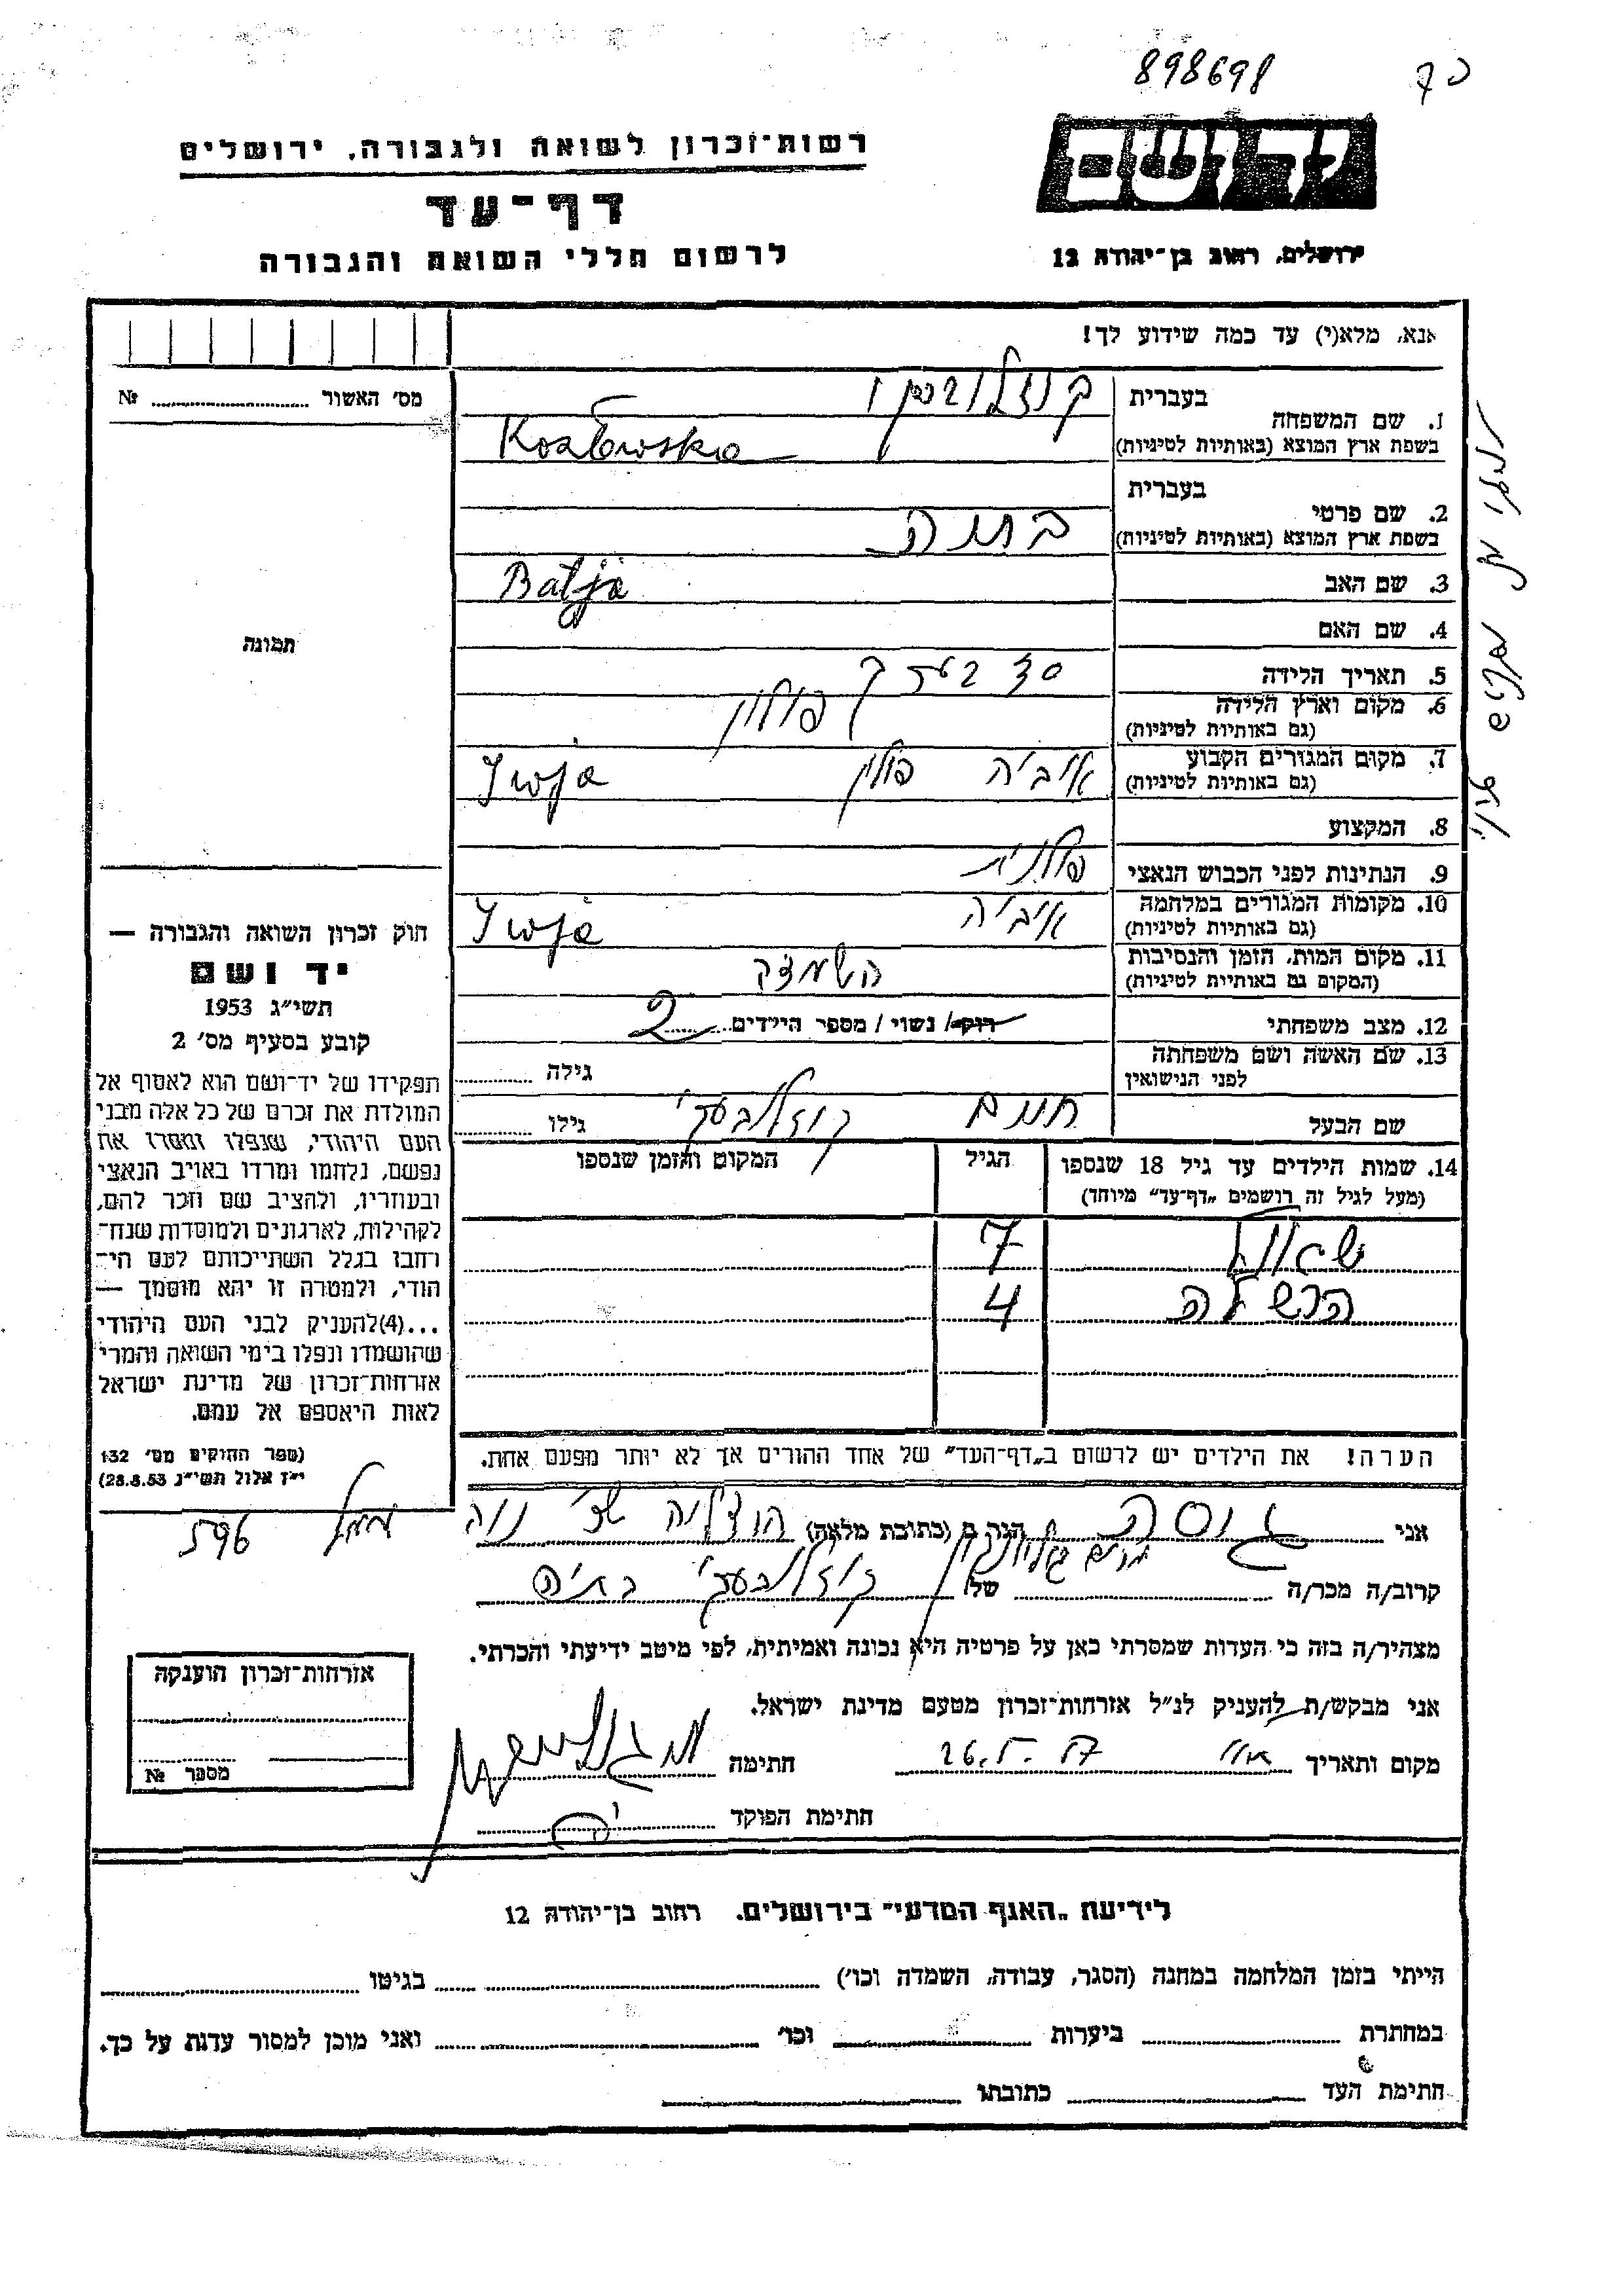 898698
יד ושם
רשות־זכרון לשואה ולגבורה, ירושלים
דף־עד
לרשום חללי השואה והגבורה
ירושלים, רחוב בן־יהודה 12
אנא, מלא(י) עד כמה שידוע לך!
מס׳ האשור № 
1. שם המשפחה
בעברית
בשפת ארץ המוצא (באותיות לטיניות)
Kozłowska
2. שם פרטי
בעברית
בתיה
בשפת ארץ המוצא (באותיות לטיניות)
Batja
3. שם האב
4. שם האם
5. תאריך הלידה 30
6. מקום וארץ הלידה פולין
(גם באותיות לטיניות)
7. מקום המגורים הקבוע אוביה פולין Iwja
(גם באותיות לטיניות)
8. המקצוע
9. הנתינות לפני הכבוש הנאצי פולנית
10. מקומות המגורים במלחמה אוביה Iwja
(גם באותיות לטיניות)
11. מקום המות, הזמן והנסיבות השמדה
(המקום גם באותיות לטיניות)
12. מצב משפחתי רוק/ נשוי / מספר הילדים 2
13. שם האשה ושם משפחתה
לפני הנישואין גילה
שם הבעל חיים קוזלובסקי גילו
14. שמות הילדים עד גיל 18 שנספו
(מעל לגיל זה רושמים „דף־עד” מיוחד)
הגיל
המקום והזמן שנספו
7
4
הערה! את הילדים יש לרשום ב„דף־העד” של אחד ההורים אך לא יותר מפעם אחת.
תמונה
חוק זכרון השואה והגבורה —
יד ושם
תשי״ג 1953
קובע בסעיף מס׳ 2
תפקידו של יד־ושם הוא לאסוף אל
המולדת את זכרם של כל אלה מבני
העם היהודי, שנפלו ומסרו את
נפשם, נלחמו ומרדו באויב הנאצי
ובעוזריו, ולהציב שם וזכר להם,
לקהילות, לארגונים ולמוסדות שנח־
רבו בגלל השתייכותם לעם הי־
הודי, ולמטרה זו יהא מוסמך —
...(4)להעניק לבני העם היהודי
שהושמדו ונפלו בימי השואה והמרי
אזרחות־זכרון של מדינת ישראל
לאות היאספם אל עמם.
(ספר החוקים מס׳ 132
י״ז אלול תשי״ג 28.8.53)
אני הגר ב (כתובת מלאה) הרצליה נוה
עמל 596
קרוב/ה מכר/ה של קוזלובסקי בתיה
מצהיר/ה בזה כי העדות שמסרתי כאן על פרטיה היא נכונה ואמיתית, לפי מיטב ידיעתי והכרתי.
אני מבקש/ת להעניק לנ״ל אזרחות־זכרון מטעם מדינת ישראל.
מקום ותאריך 26. חתימה
חתימת הפוקד
אזרחות־זכרון הוענקה
מספר №
לידיעת „האגף המדעי” בירושלים, רחוב בן־יהודה 12
הייתי בזמן המלחמה במחנה (הסגר, עבודה, השמדה וכו׳) בגיטו
במחתרת ביערות וכו׳ ואני מוכן למסור עדות על כך.
חתימת העד כתובתו